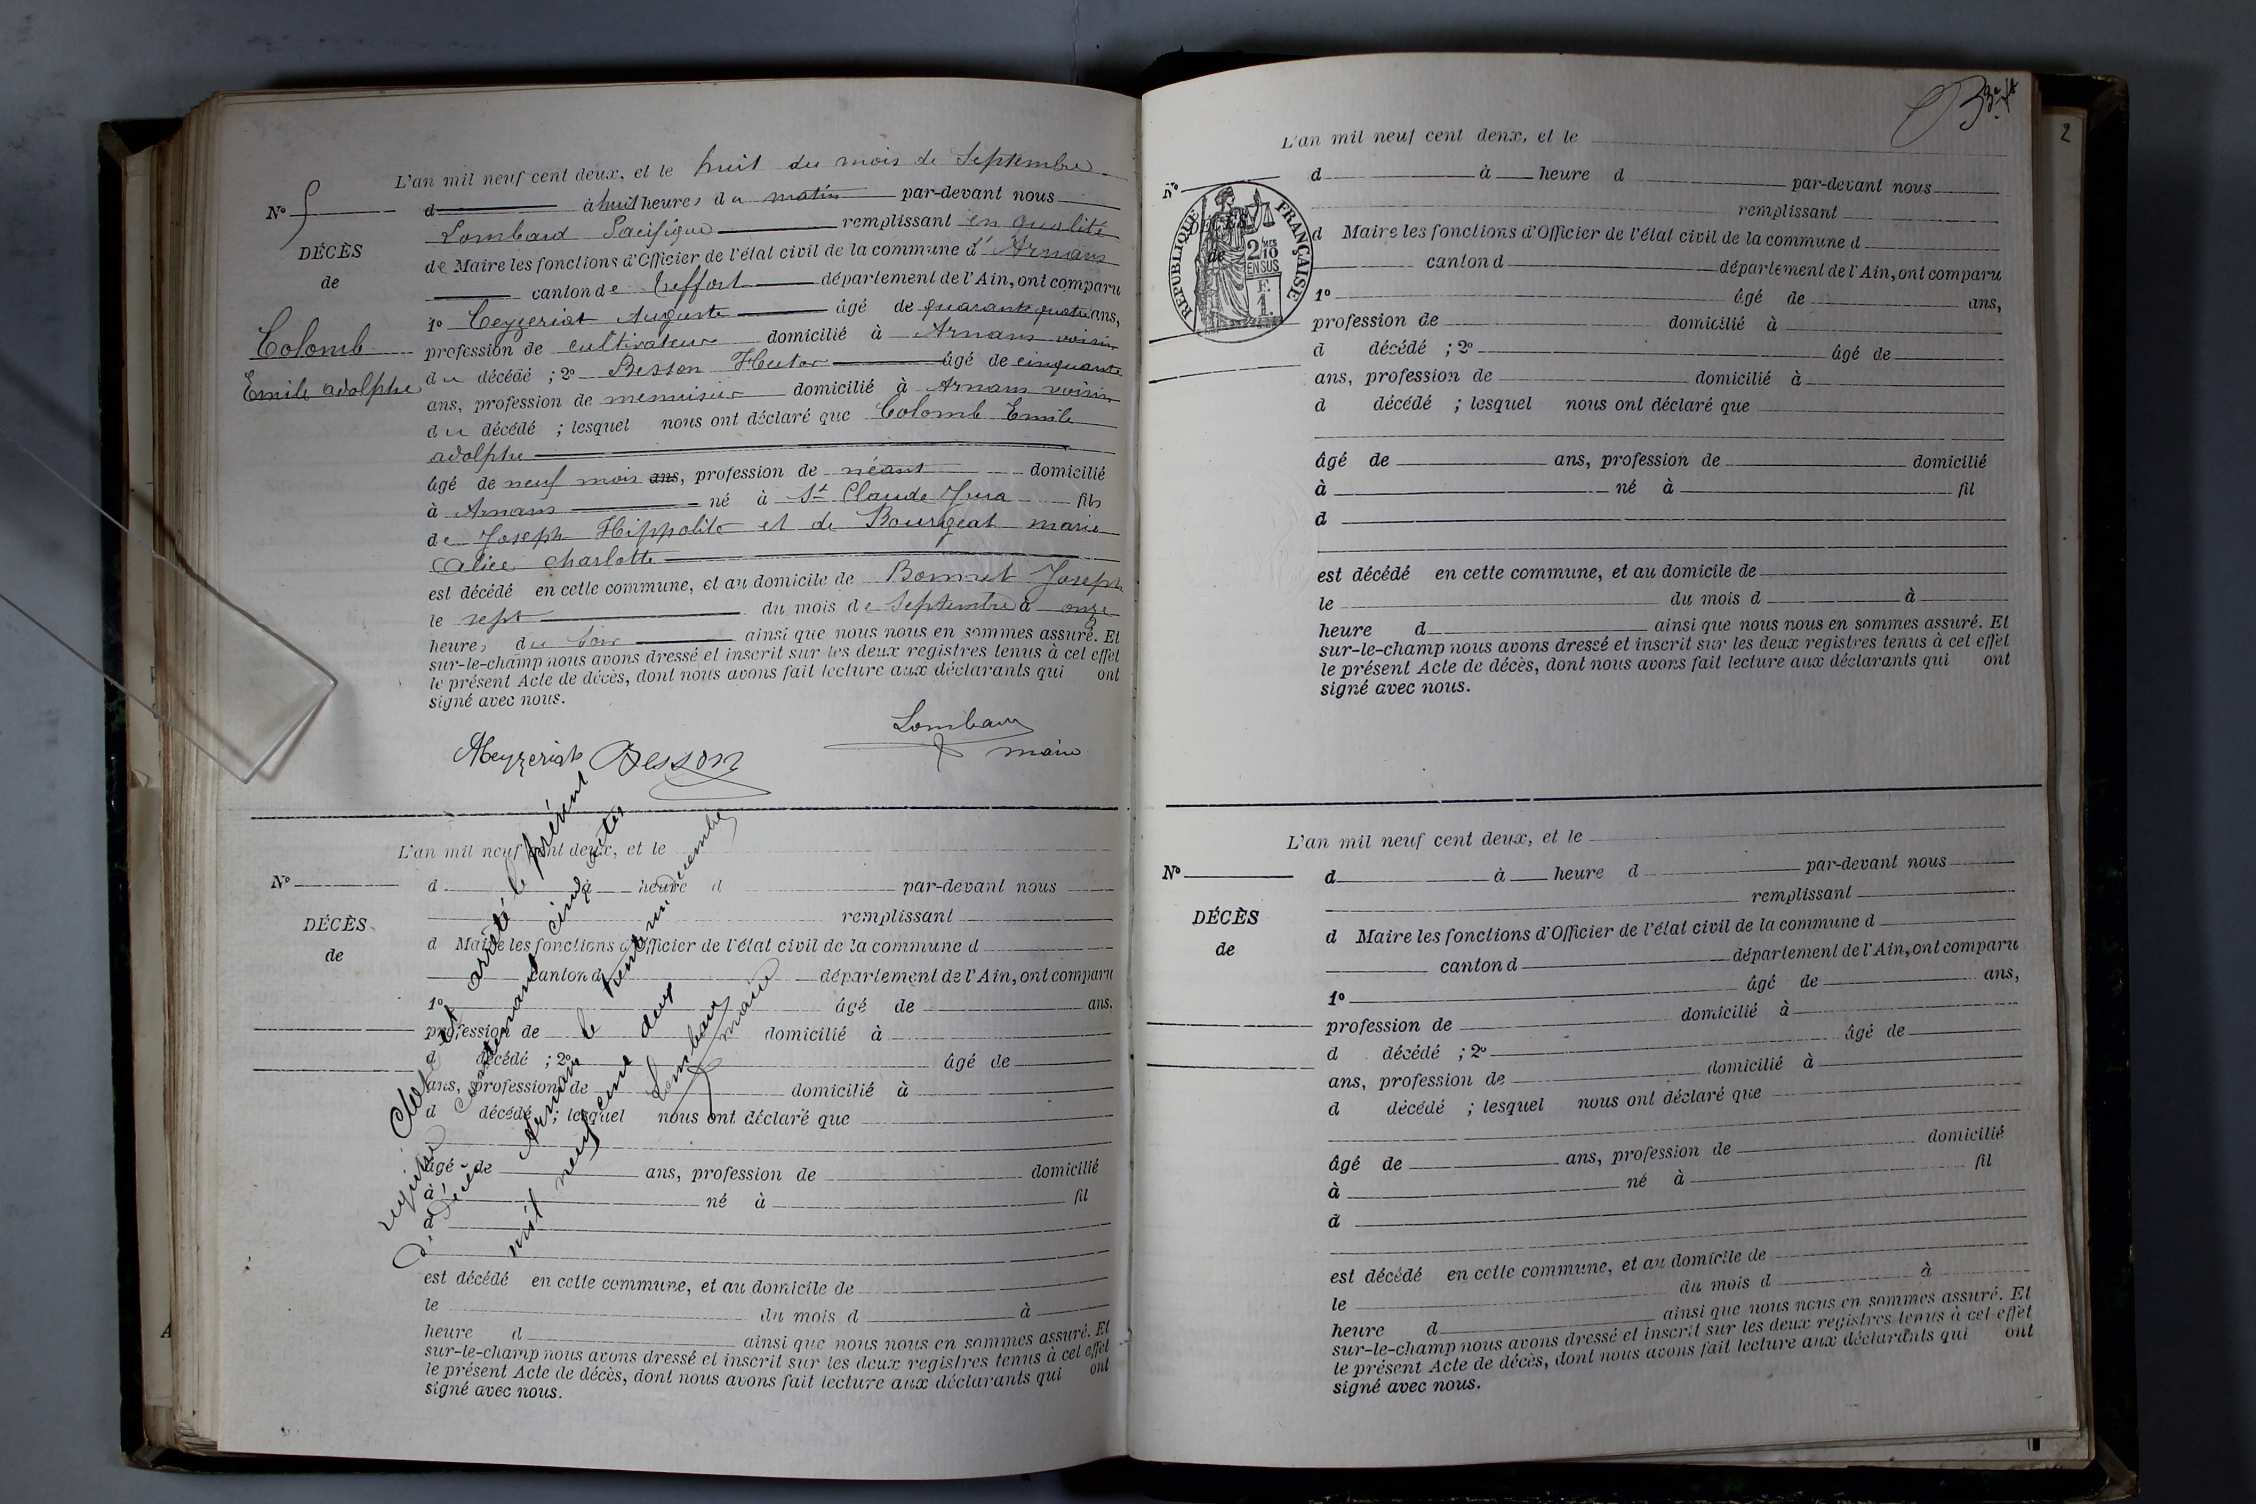 L'an mil neuf cent deux, et le huit du mois de Septembre
No 5
d à huit heures du matin par-devant nous
Lombard Pacifique remplissant en qualité
DÉCÈS
de Maire les fonctions d'Officier de l'état civil de la commune d' Arnans
de
canton de Treffort département de l'Ain, ont comparu
1o Ceyzeriat Auguste âgé de quarante quatre ans,
Colomb
profession de cultivateur domicilié à Arnans voisin
Emile adolphe
du décédé ; 2o Besson Hector âgé de cinquante
ans, profession de menuisier domicilié à Arnans voisin
du décédé ; lesquel nous ont déclaré que Colomb Emile
adolphe
âgé de neuf mois ans, profession de néant domicilié
à Arnans né à St Claude Jura fils
de Joseph Hippolite et de Bourgeat marie
alice charlotte
est décédé en cette commune, et au domicile de Bonnet Joseph
le sept du mois de Septembre à onze
heures du soir ainsi que nous nous en sommes assuré. Et
sur-le-champ nous avons dressé et inscrit sur les deux registres tenus à cet effet
le présent Acte de décès, dont nous avons fait lecture aux déclarants qui ont
signé avec nous.
Lombard
maire
Besson
L'an mil neuf cent deux, et le
No
d à heure d par-devant nous
remplissant
DÉCÈS
d Maire les fonctions d'Officier de l'état civil de la commune d
de
canton d département de l'Ain, ont comparu
1o âgé de ans.
profession de domicilié à
d décédé ; 2o âgé de
ans, profession de domicilié à
d décédé ; lesquel nous ont déclaré que
âgé de ans, profession de domicilié
à né à fil
d
est décédé en cette commune, et au domicile de
le du mois d à
heure d ainsi que nous nous en sommes assuré. Et
sur-le-champ nous avons dressé et inscrit sur les deux registres tenus à cet effet
le présent Acte de décès, dont nous avons fait lecture aux déclarants qui ont
signé avec nous.
Clos et arrêté le présent
registre contenant cinq actes
de décès
Arnans le trente un décembre
mil neuf cent deux
Lombard
maire
2
L'an mil neuf cent deux, et le
No
d à heure d par-devant nous
remplissant
DÉCÈS
de
RÉPUBLIQUE FRANÇAISE
2/10 EN SUS
F. 1.
d Maire les fonctions d'Officier de l'état civil de la commune d
canton d département de l'Ain, ont comparu
1o âgé de ans,
profession de domicilié à
d décédé ; 2o âgé de
ans, profession de domicilié à
d décédé ; lesquel nous ont déclaré que
âgé de ans, profession de domicilié
à né à fil
d
est décédé en cette commune, et au domicile de
le du mois d à
heure d ainsi que nous nous en sommes assuré. Et
sur-le-champ nous avons dressé et inscrit sur les deux registres tenus à cet effet
le présent Acte de décès, dont nous avons fait lecture aux déclarants qui ont
signé avec nous.
L'an mil neuf cent deux, et le
No
d à heure d par-devant nous
remplissant
DÉCÈS
d Maire les fonctions d'Officier de l'état civil de la commune d
de
canton d département de l'Ain, ont comparu
1o âgé de ans,
profession de domicilié à
d décédé ; 2o âgé de
ans, profession de domicilié à
d décédé ; lesquel nous ont déclaré que
âgé de ans, profession de domicilié
à né à fil
d
est décédé en cette commune, et au domicile de
le du mois d à
heure d ainsi que nous nous en sommes assuré. Et
sur-le-champ nous avons dressé et inscrit sur les deux registres tenus à cet effet
le présent Acte de décès, dont nous avons fait lecture aux déclarants qui ont
signé avec nous.